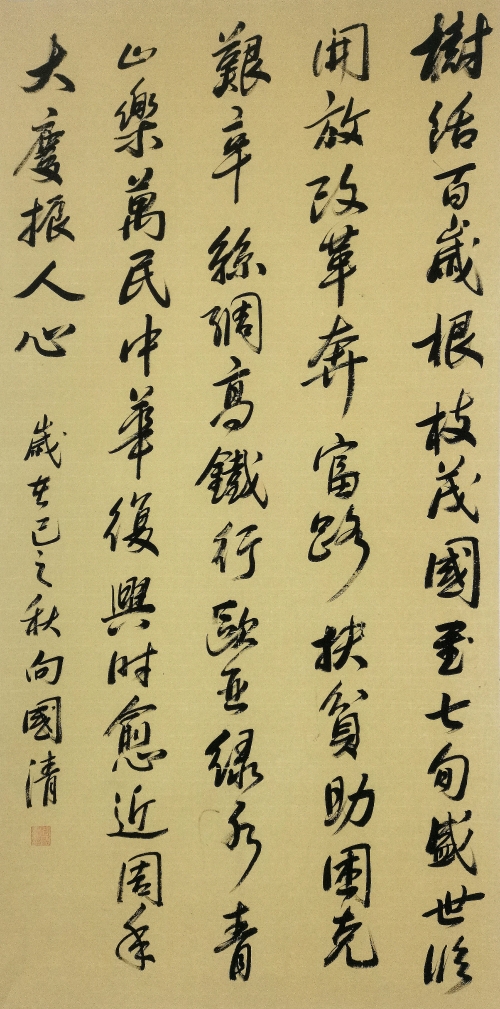 樹活百歲根枝茂國至七旬盛世临
開放改革奔富路扶貧助困克
艱辛絲綢高鐵行歐亞綠水青
山樂萬民中華復興时愈近周年
大慶振人心
歲在己亥秋向國清